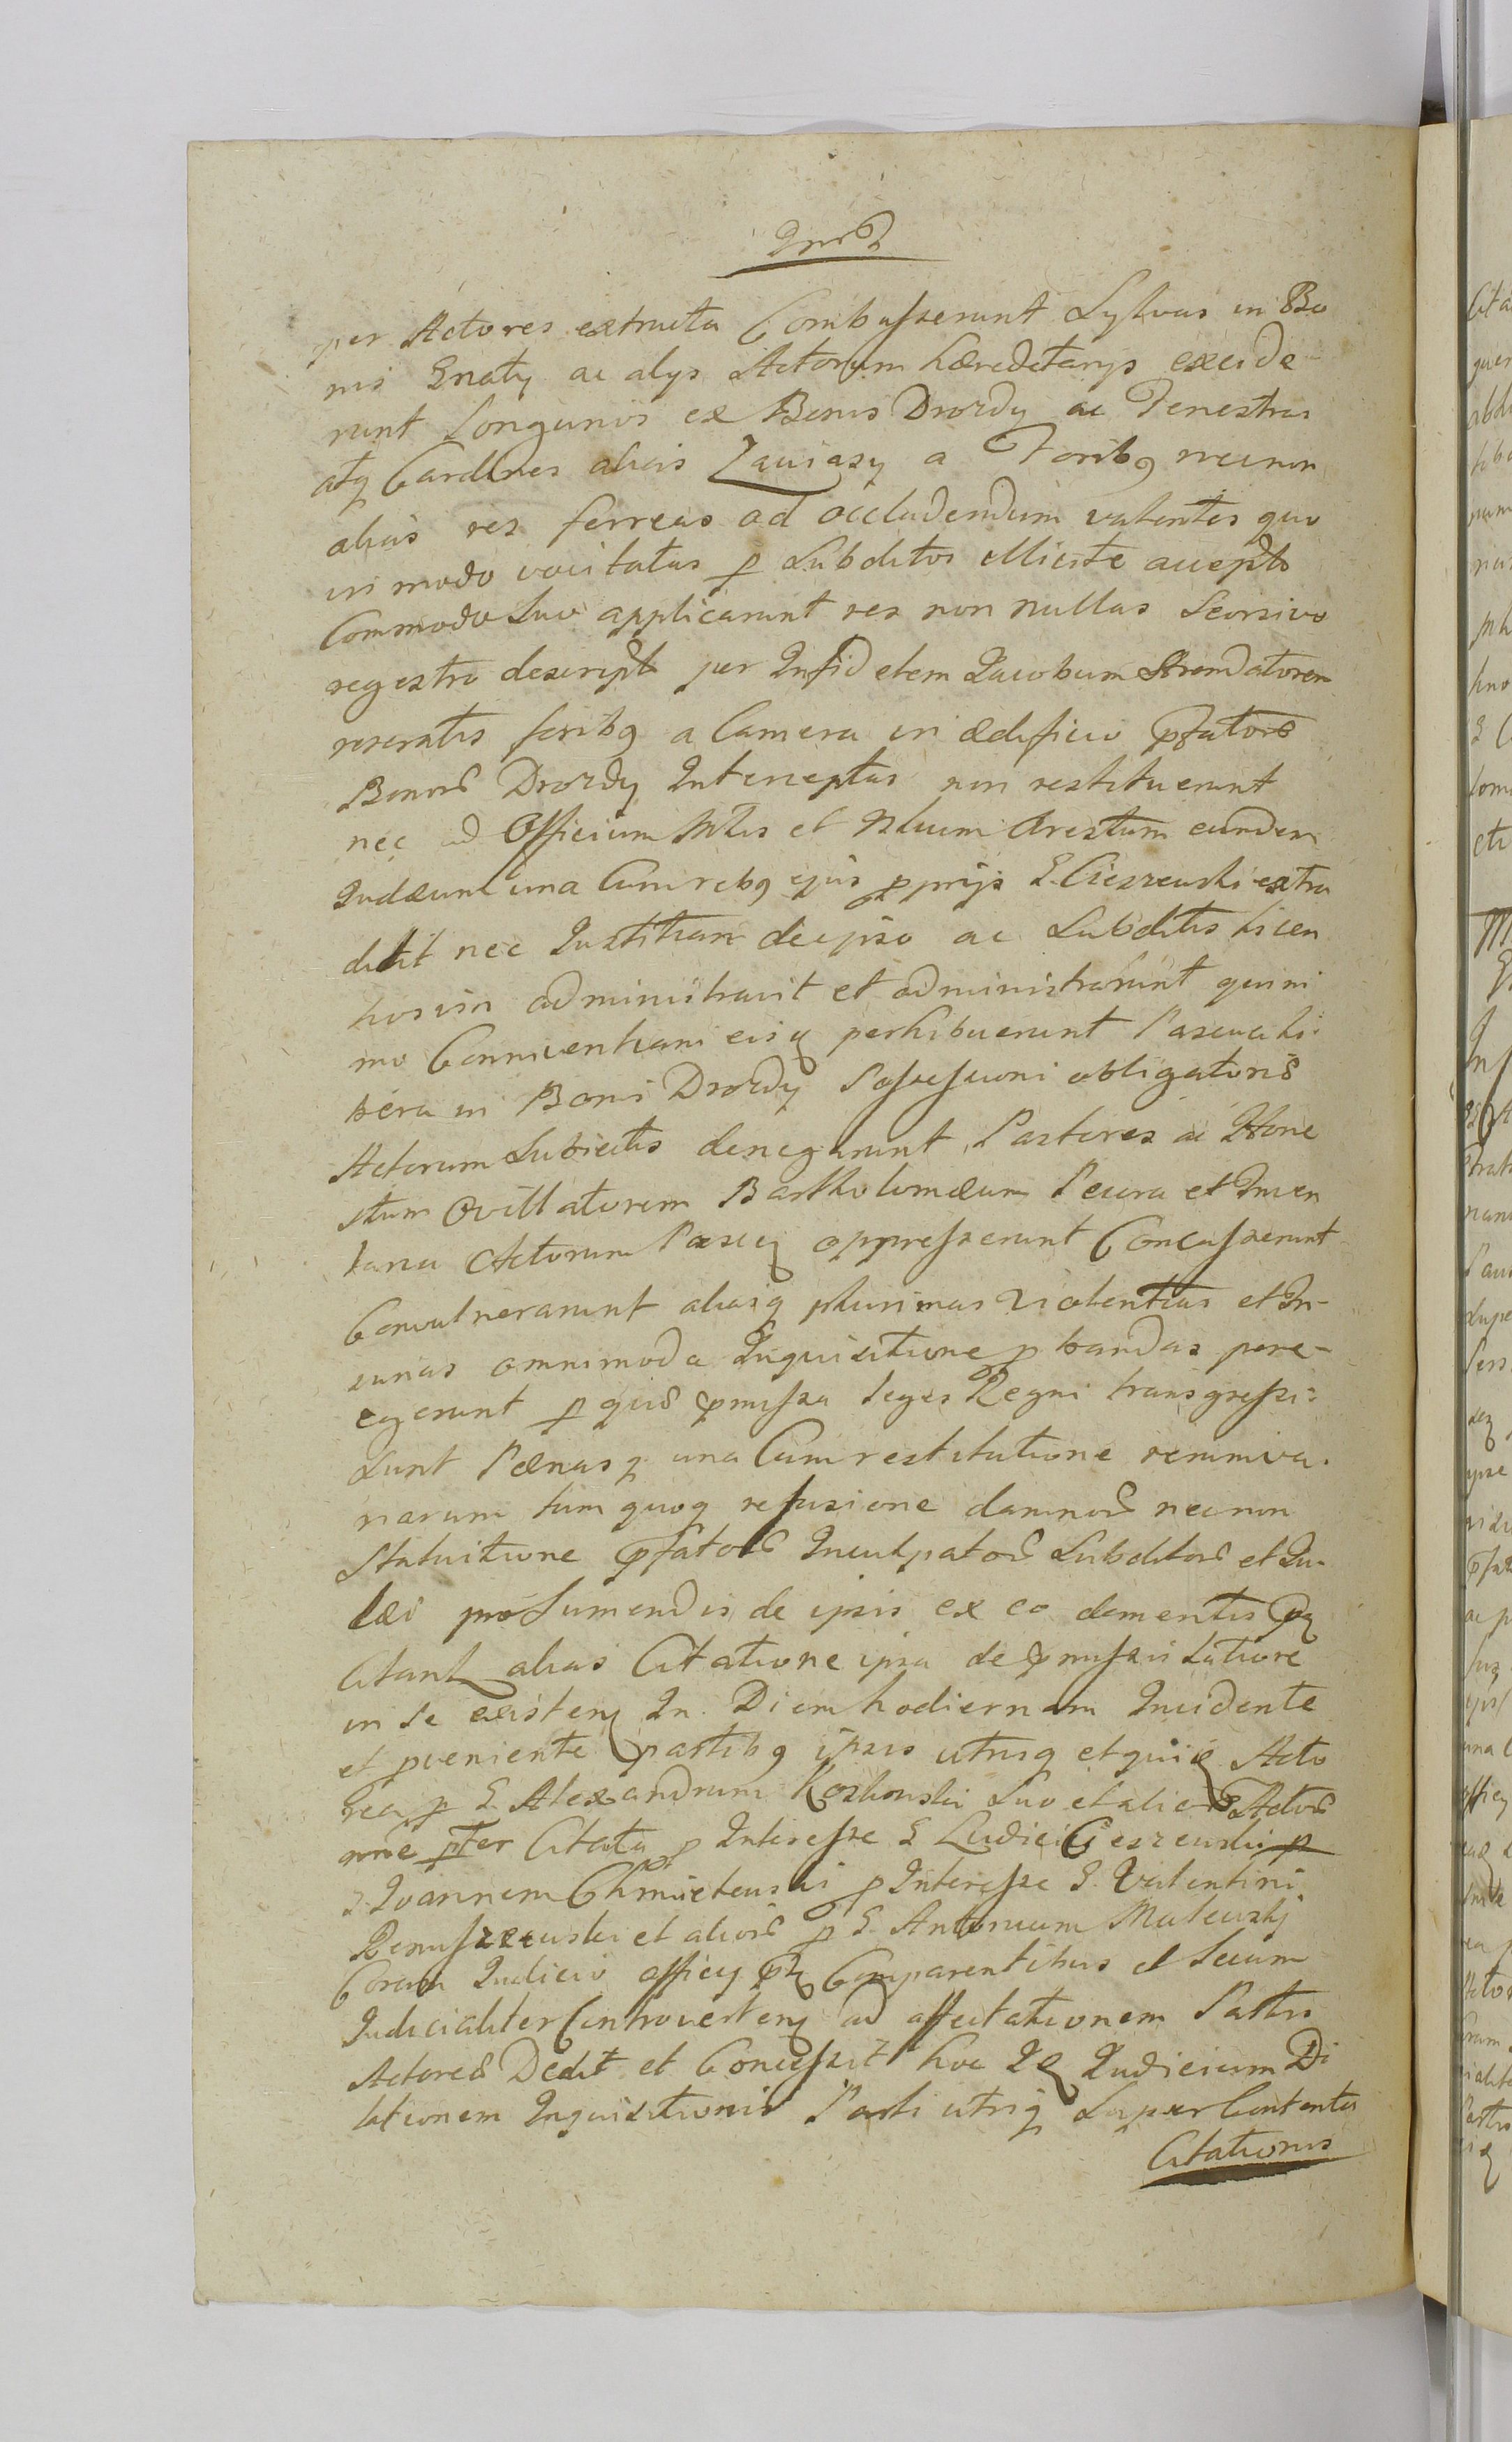 per Actores extructa Combusserunt Sylvas in Bo
nis Gnaty ac alys Actorum hæreditarys excide
runt Longunios ex Bonis Drozdy ac Fenestras
atq Cardines alias Zawiasy a Foribq necnon
alias res ferreas ad occludendum valentes quo
vis modo vocitatas p Subditos Illicite accepto
Commodo Suo applicarunt res non nullas Seorsivo
regestro descript per Infidelem Jacobum Arendatorem
reseratis foribq a Camera in ædificio pfator
Bonor Drozdy Interceptas non restituerunt
nec ad Officium et Arestum eundem
Judæum una Cum rebq ejus pprijs G. Cieszewski extra
didit nec Justitiam de ipso ac Subditis licen
tiosis administravit et administrarunt quini
mo Conniventiam eisq perhibuerunt Pascua li
bera in Bonis Drozdy Possessioni obligatoriæ
Actorum Subiectis denegarunt, Pastores ac Hone
stum Ovillatorem Bartholomæum Pecora et Inven
taria Actorum Pascen oppresserunt Concusserunt
Convulnerarunt aliasq plurimas Violentias et In-
iurias omnimoda Inquisitione pbandas pere-
egerunt p quæ pmissa leges Regni transgressi
Sunt Pænasq una Cum restitutione rerum va.
riarum tum quoq refusione damnor necnon
Statuitione pfator Inculpator Subditor et Ju-
dæi pro Sumendis de ipsis ex eo dementis
Citant alias Citatione ipsa de pmissis Latiore
in Se existen In Diem hodiernam Incidente
et pveniente partibq ipsis utrisq et quidem Acto
rea p G. Alexandrum Kozlowski Suo et alior Actor
nne pter Citata p Interesse G Ludici Cieszewski p
G. Joannem Chmielewski p Interesse G. Valentini
Remiszewski et alior p G. Antonium Makowski
Coram Judicio officy Comparentibus et Secum
Judicialiter Controverten ad affectationem Partis
Actoreæ Dedit et Concessit hoc Judicium Di
lationem Inquisitionis Parti utriq Super Contentis
Citationis